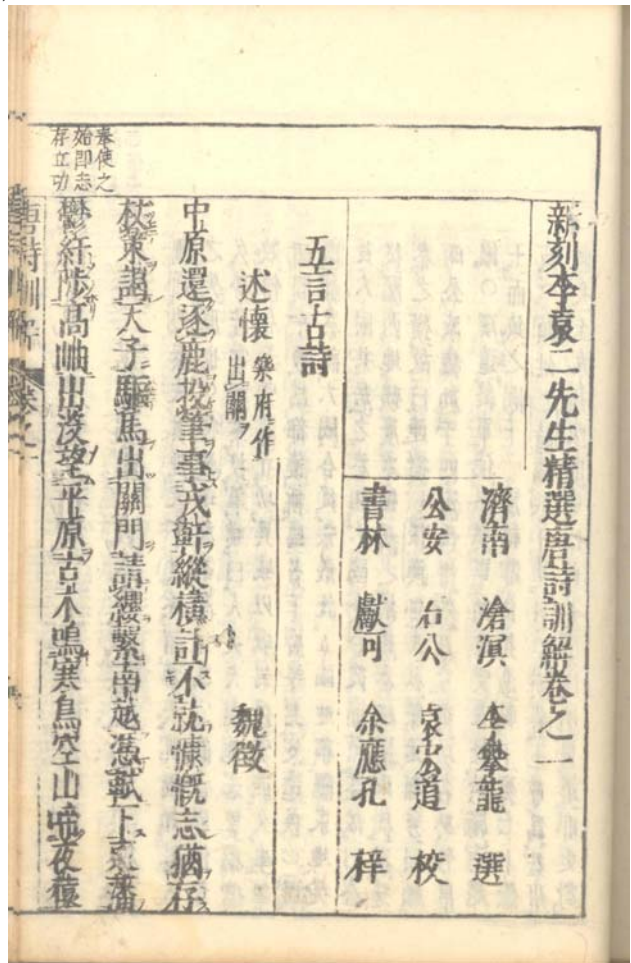 新刻李袁二先生精選唐詩訓解卷之一
濟南 滄溟 李攀龍 選
公安 石公 袁宏道 校
書林 獻可 余應孔 梓
五言古詩
述懷 樂府作出關 魏徵
中原還逐鹿投筆事戎軒縱橫計不就慷慨志猶存
杖策謁天子驅馬出關門請纓繫南越憑軾下東藩
鬱紆陟高岫出沒望平原古木鳴寒鳥空山啼夜猿
奉使之
始即志
存立功
唐詩訓解 卷之一